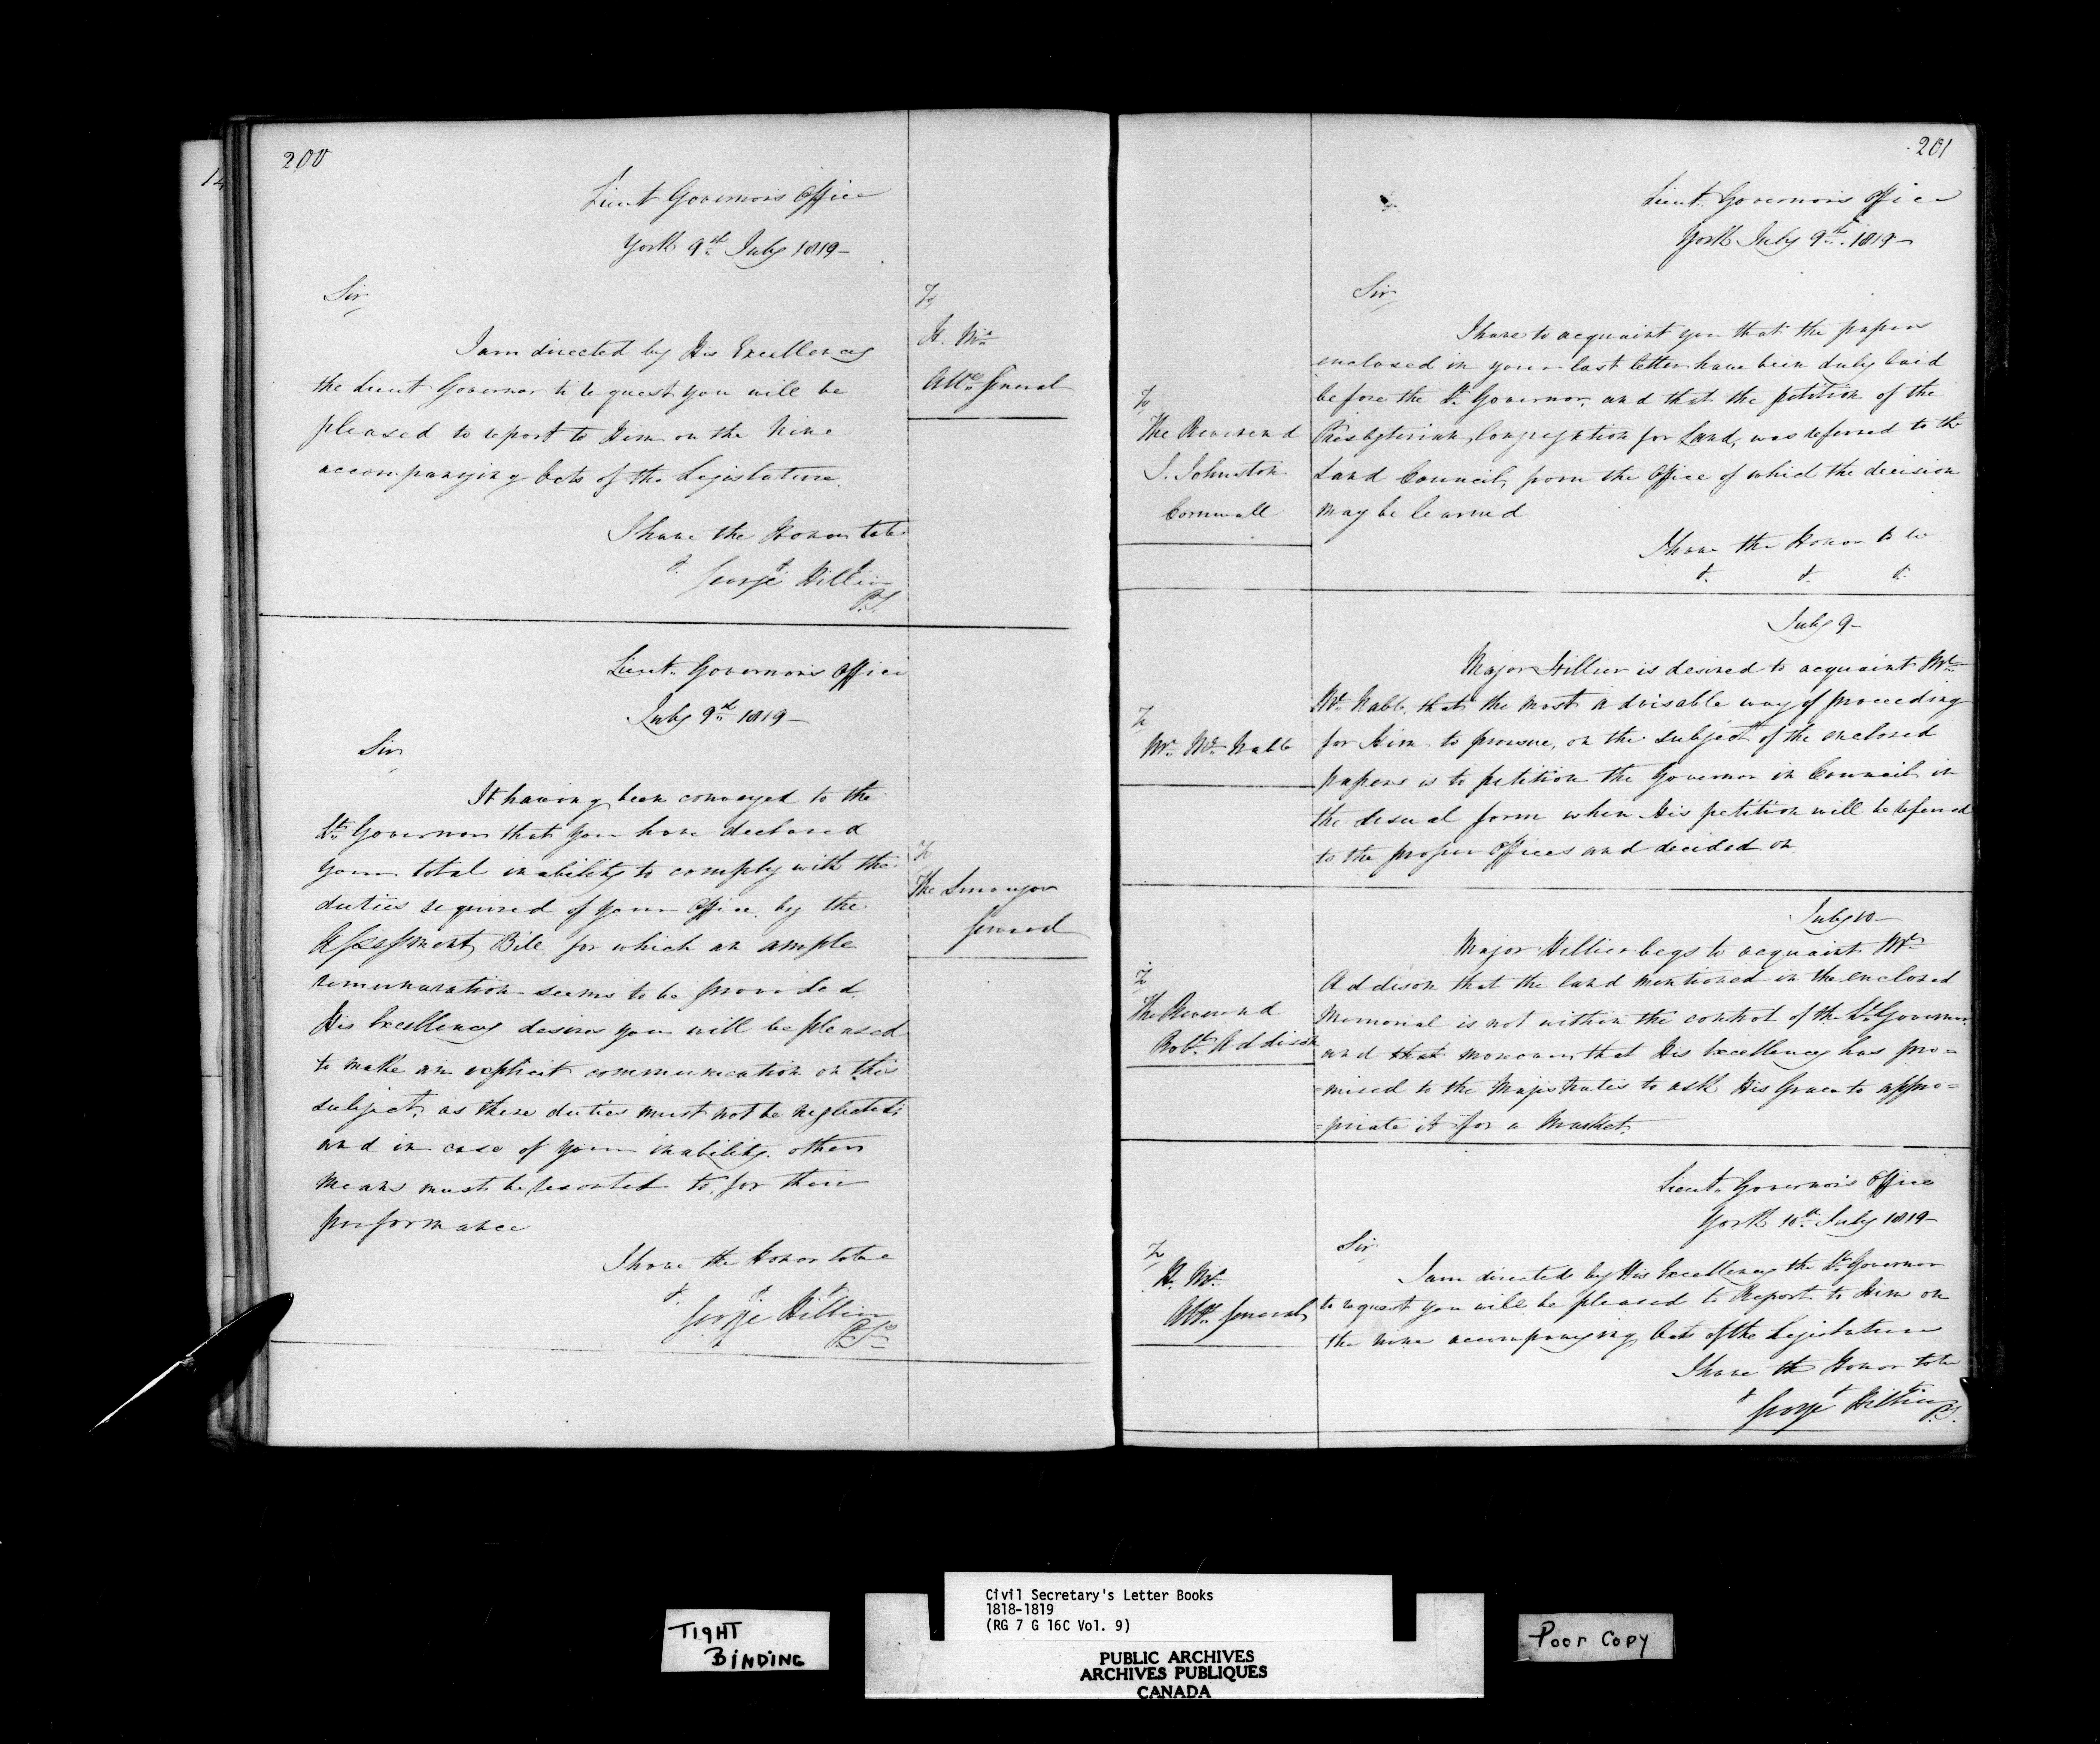 200
Lieut Governor's Office
York 9th July 1819—
Sir
To
H. M.
Atty General
I am directed by His Excellency
the Lieut Governor to request you will be
pleased to report to Him on the Nine
accompanying Acts of the Legislature.
I have the Honor to be
&. George Hillier
P.S.
Lieut. Governor's Office
July 9th 1819—
Sir
To
The Surveyor
General
It having been conveyed to the
Lt. Governor that you have declared
your total inability to comply with the
duties required of your Office, by the
Assessment Bill for which an ample
remuneration seems to be provided,
His Excellency desires you will be pleased
to make an explicit communication on this
subject, as these duties must not be neglected;
and in case of your inability, other
means must be resorted to, for their
performance
I have the Honor to be
&. &. &.
George Hillier
P.S.
201
Lieut. Governor's Office
York July 9th. 1819—
Sir
To
The Reverend
J. Johnston
Cornwall
I have to acquaint you that the papers
enclosed in your last letter have been duly laid
before the Lt. Governor, and that the petition of the
Presbyterian Congregation for Land, was referred to the
Land Council, from the Office of which the decision
may be learned
I have the Honor to be
&. &. &.
July 9—
To
Mr. Mc. Nabb
Major Hillier is desired to acquaint Mr.
Mc. Nabb, that the most advisable way of proceeding
for Him to pursue, on the subject of the enclosed
papers is to petition the Governor in Council in
the usual form when His petition will be referred
to the proper Offices and decided on
July 10—
To
The Reverend
Robt. Addison
Major Hillier begs to acquaint Mr.
Addison that the land mentioned in the enclosed
Memorial is not within the control of the Lt. Governor
and that moreover that His Excellency has pro=
=mised to the Magistrates to ask His Grace to appro=
=priate it for a Market.
Lieut. Governor's Office
York 10th. July 1819—
Sir
To
H. M.
Atty. General
I am directed by His Excellency the Lt. Governor
to request you will be pleased to Report to Him on
the nine accompanying Acts of the Legislature
I have the Honor to be
& & &
George Hillier P.S.
TIGHT
BINDING
Civil Secretary's Letter Books
1818-1819
(RG 7 G 16C Vol. 9)
PUBLIC ARCHIVES
ARCHIVES PUBLIQUES
CANADA
Poor Copy